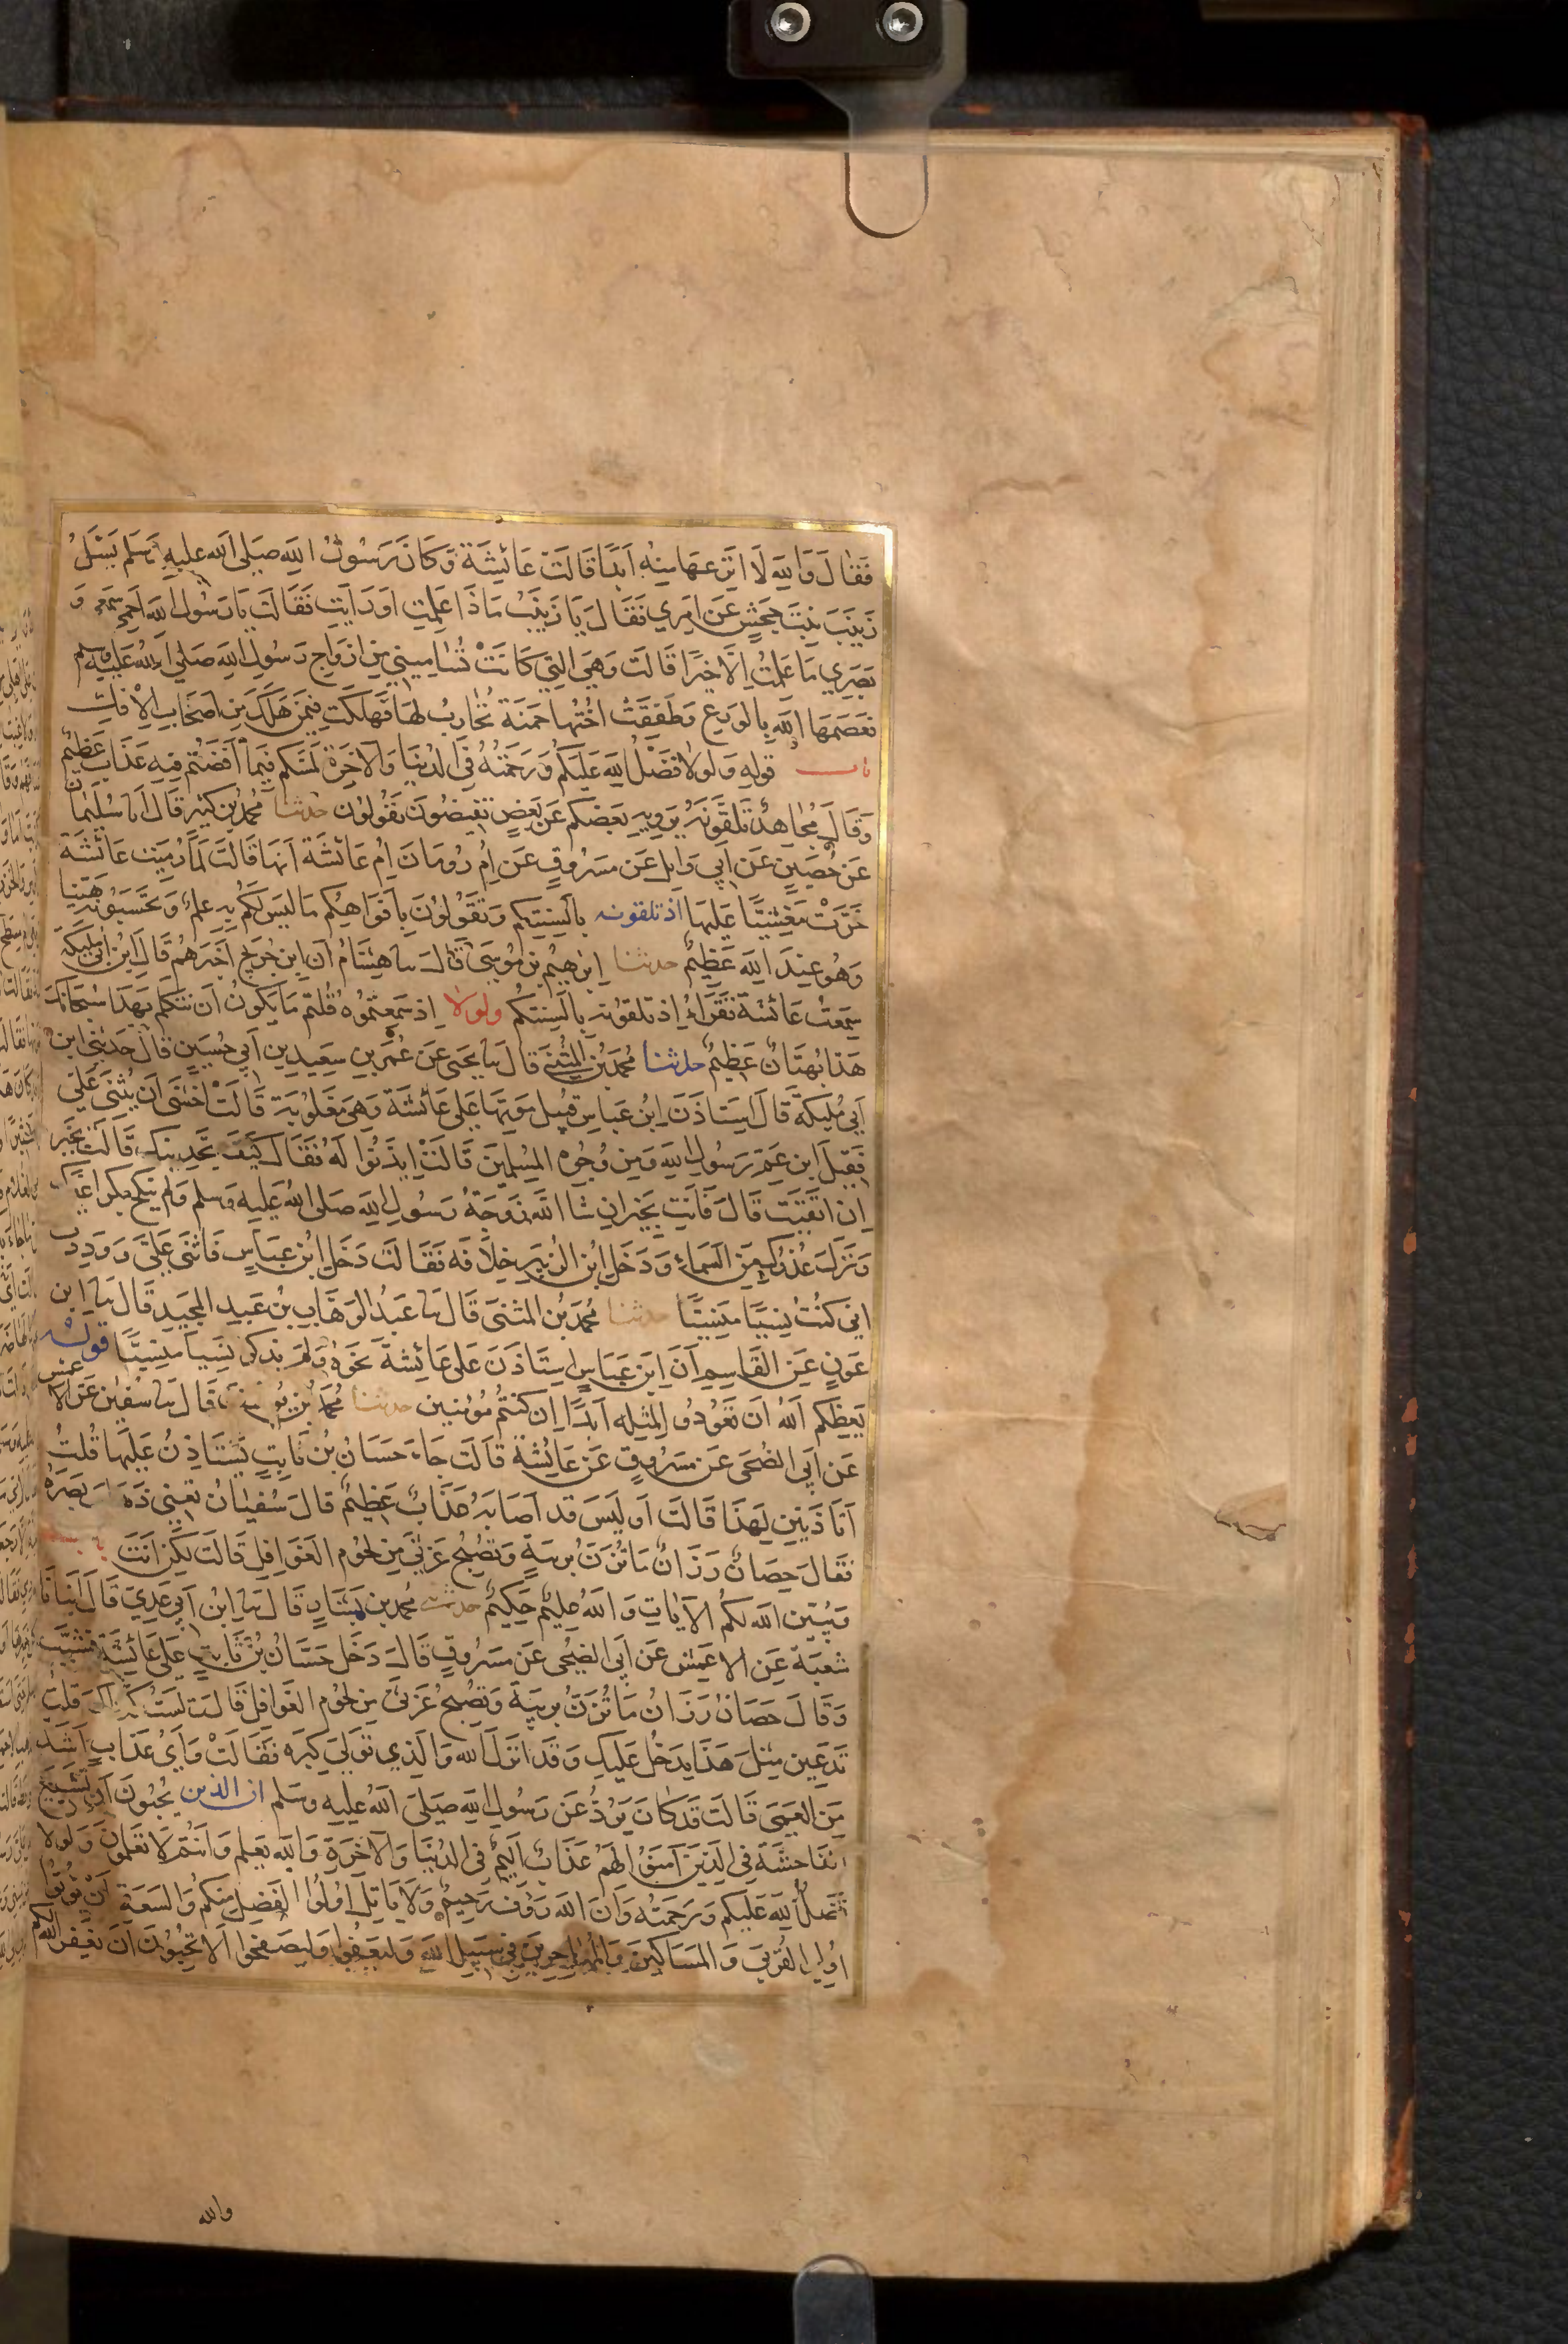 فَقَالَ وَاللهِ لَا انَزعهَا مِنْهُ اَبَدًا قَالَتْ عَائِشَةُ وَكَانَ رَسُولُ اللهِ صَلى اَلله عليهِ وَسَلم يَسْئَلُ
زَينَبَ بنِتَ جَحَشٍ عَن اَمرِي فَقَالَ يَا زَينَبُ مَاذَا عَلِمتِ اوَرَايَتِ فَقَالَت يَا رَسُولَ الله اَحمِي سَمعِي وَ
بَصَرِي مَا عَلمتُ اِلَّا خَيرًا قَالَت وَهيَ التِي كَانَتْ تُسَامِينيِ مِن ازَوَاجِ رَسُولِ اللهِ صَلي اَللهُ عَلَيهِ وسلم
فعَصَمَهَا اللهِ بِالوَرعِ وَطَفِقَتْ اُختُها حَمنَة تُحَارِبُ لهَا فهَلكَت فيمَن هَلَكَ مِن اَصحَابِ الاْفكِ
باب قولهِ وَلَولَا فَضْلُ اللهِ عَلَيكُم وَرَحمَتُهُ فِي الدُنيَا وَالاخِرَة لَمسَكم فيمَا اَفَضتُم فيهِ عَذَاب عَظِيم
وَقَالَ مُجاهدٌ تَلَقَونَهُ يَروِيهِ بَعضكم عَن بَعضٍ تفيضُونَ تقُولوُن حدثنا محُمَّدُ بن كثير قَالَ اَنا سُلَيمَان
عَن حُصَينٍ عَن اَبِي وَايِل عَن مَسرُوقٍ عَن اِمُ رُومَانَ اِم عَائشَة اَنهَا قَالَت لَمَّا رُمِيَت عَائشَة
خَرَّتْ مَغشِيًّا عَلَيهَا اذ تلقونه بالَسِنتِكم وَتقُولوُنَ بِافَوَاهِكُم مَا لَيسَ لَكُم بهِ عِلمٌ وَتحسَبُونهُ هَيّنا
وَهُو عِندَ الله عَظِيمٌ حدثنا اِبرٰهيمُ بن مُوسَى قَالَ نا هشَامُ اَن اِبنَ جُرَيج اَخبَرهُم قَالَ اِبنُ اَبي مُلَيكَة
سِمَعتُ عَائشَة تَقَراءُ اِذ تلقونه بالَسِنتكُم ولولا اِذ سَمِعتمُوُه قُلتم مَا يَكوُنُ لنَا اَن نتكلم بهَذَا سُبحَانكَ
هَذَا بُهتَانٌ عَظِيمٌ حدثنا محُمَدُ بنُ المثُنى قَال نا يَحيَى عَن عُمَر بنِ سَعِيدِ بنِ اَبِي حُسَينٍ قَالَ حَدَثنِي ابنُ
اَبِي مُلَيكَة قَالَ استَاذَنَ اِبنُ عَبَاسٍ قبيل مَوتِهَا عَلى عَائشَة وَهيَ مَغلوُبَة قَالَتْ اخَشى اَن يُثنيَ عَليَّ
فَقيلَ ابن عَم رَسُولِ اللهِ وَمِن وُجُوه المُسلِمينَ قَالَتْ اِيذَنُوا لَهُ فَقَالَ كَيفَ تَجدِينكِ قَالَت بخَير
اِن اتقَيَت قَالَ فَانَتِ بخَيرٍ اِن شَا الله زَوجَةُ رَسُولِ اللهِ صَلى اللهُ عَليهِ وَسلم وَلم يَنكح بكرا غَيرَكِ
وَنزَلَ عُذرُكِ مِن السَماءِ وَدَخَلَ ابنُ الزبَيرِ خِلَافَه فَقَالَت دَخَلَ ابنُ عَبَاسٍ فَاثنَى عَليَّ وَوَدِدت
انِي كنُتُ نِسيًا مَنِسيًّا حدثنا محُمَدُ بنُ المثَنىَ قَالَ نا عَبدُ الوَهَابِ بنُ عَبدِ المجيدِ قَالَ نا ابن
عَونٍ عَنِ القَاسِمِ اَنَ ابنَ عَبَاسٍ استَاذَنَ عَلى عَائِشةَ نحَوهُ وَلمَ يذكر نِسياً مَنِسيَّا قولهُ
يَعِظكم اللهُ اَن تعُودُو المِثلِه اَبدًا اِن كنتُم مُؤمنين حدثنا محُمَدُ بنُ يُوسُفَ قَالَ نا سفيٰن عَن الاعمش
عَن اَبِي الضُحَى عَن مَسَرُوقٍ عَن عَائِشَةَ قَالَت جَاءَ حَسَانُ بنُ ثَابِتٍ يَستَاذِنُ عَلَيهَا قُلتُ
اَتَاذَنيِنَ لهَذَا قَالَت اَوَ لَيسَ قد اَصَابَهُ عَذَابٌ عَظِيمٌ قَالَ سُفيَانُ تَعنِي ذَهَابَ بَصَرَهُ
فَقَالَ حِصَانٌ رَزَانٌ مَا تُزَنُ بِريَبةٍ وَتصُبحُ غَرثَى مِن لحُومِ الغَوَافِلِ قَالَت لكَن انَتَ باب
وَيبُيّن الله لكمُ الاَيَاتِ وَالله عَليمٌ حَكِيمٌ حدثني محُمد بن بَشَارٍ قَالَ نا ابنُ اَبي عَدِيّ قَالَ اَنبَانَا
شعبَة عَن الاعمَش عَن اَبِي الضحُى عَن مَسرُوقٍ قَالَ دَخَل حَسَانُ بنُ ثَابِتٍ عَلى عَائشَة فشَبَّبَ
وَقَالَ حَصَانٌ رَزَانٌ مَا تُزَنُ بِريبَةَ وَتصُبحُ غَرثىَ مِن لحُوم الغَوافِلِ قَالَت لَستَ كَذَاكَ قلتُ
تَدَعِينَ مِثلَ هَذَا يَدخُل عَليَكِ وَقَد انَزلَ الله وَالَذِي توَلَى كِبرَه فَقَالَتْ وَايُ عَذَابٍ اَشدّ
مِن العَمى قَالَت قَد كانَ يَرُدُ عَن رَسُولِ اللهِ صَلىَ اَللهُ عَليهِ وَسَلم ان الذين يُحِبُونَ اَن تَشِيعَ
الفَاحشَة فِي الذِينَ آمَنُوا لهَمُ عَذَابٌ اَلِيمٌ في الدُنيَا وَالاخِرَةِ وَالله يَعلم وَانتُم لَا تعلمُونَ وَلولا
فضَلُ اللهِ عَليكم وَرَحمَته وَانَ الله رَوُف رَحيمٌ وَلَا يَاتلَ اوُلوُا الفَضِل مِنكمُ وَالسَعَةِ اَنْ يُؤتُوا
اوُلِي القُربيَ وَالمسَاكينَ وَالمُهَاجِرينَ فِي سَبيلِ اللهِ وَليَعفُوا وَليصَفحُوا اَلا تحِبُونَ اَنْ يَغفِرَ الله لكم
والله